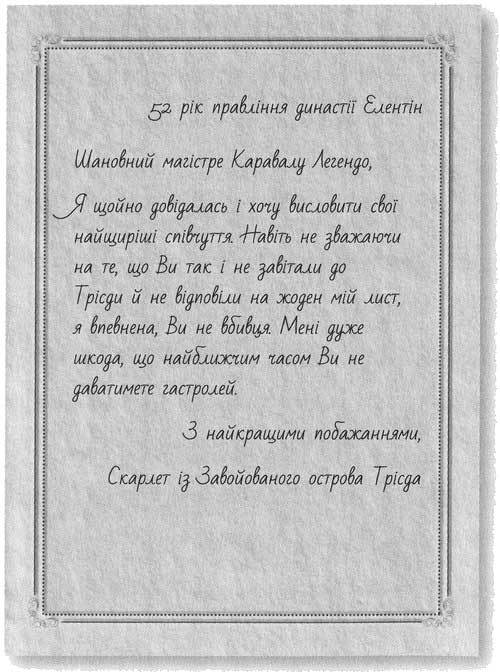 52 рік правління династії Елентін
Шановний магістре Каравалу Легендо,
Я щойно довідалась і хочу висловити свої
найщиріші співчуття. Навіть не зважаючи
на те, що Ви так і не завітали до
Трісди й не відповіли на жоден мій лист,
я впевнена, Ви не вбивця. Мені дуже
шкода, що найближчим часом Ви не
даватимете гастролей.
З найкращими побажаннями,
Скарлет із Завойованого острова Трісда